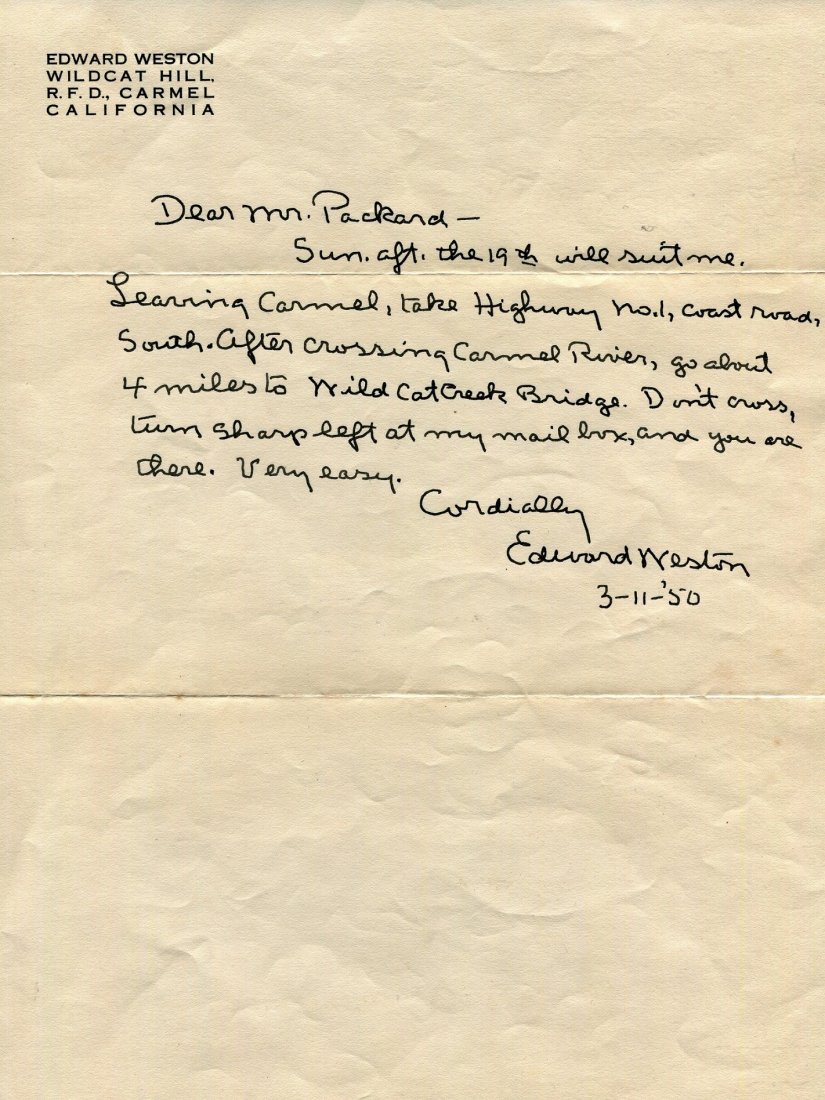 EDWARD WESTON
WILDCAT HILL,
R. F. D., CARMEL
CALIFORNIA
Dear Mr. Packard —
Sun. aft. the 19th will suit me.
Leaving Carmel, take Highway No.1, coast road,
South. After crossing Carmel River, go about
4 miles to Wild Cat Creek Bridge. Don't cross,
turn sharp left at my mail box, and you are
there. Very easy.
Cordially
Edward Weston
3-11-'50